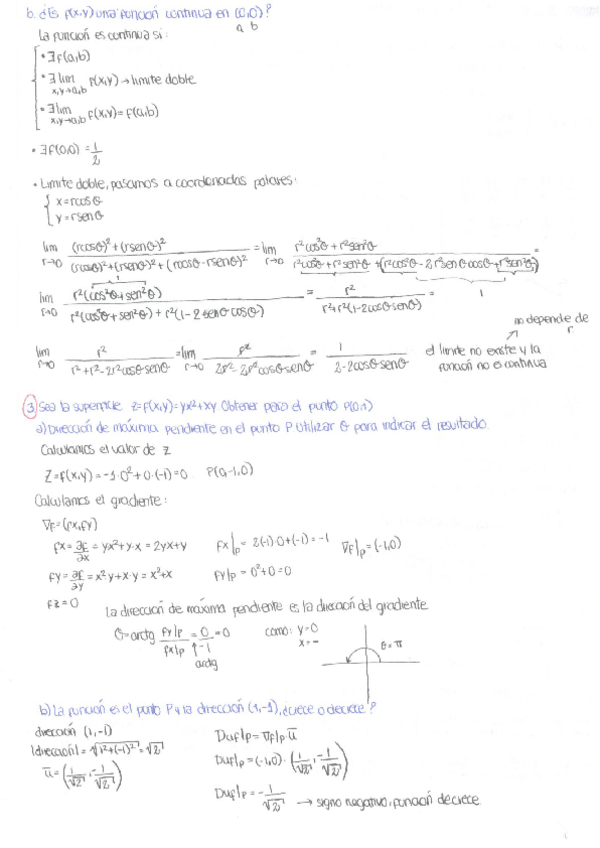 b. ¿Es f(x,y) una función continua en (0,0)?
a b
La función es continua si:
• ∃f(a,b)
• ∃ lim x,y→a,b f(x,y) → límite doble
• ∃ lim x,y→a,b f(x,y) = f(a,b)
• ∃f(0,0) = 1/2
• Límite doble, pasamos a coordenadas polares:
x = rcosθ
y = rsenθ
lim r→0 (rcosθ)²+(rsenθ)² / (rcosθ)²+(rsenθ)²+(rcosθ-rsenθ)² = lim r→0 r²cos²θ+r²sen²θ / r²cos²θ+r²sen²θ+(r²cos²θ-2r²senθcosθ+r²sen²θ) =
1
lim r→0 r²(cos²θ+sen²θ) / r²(cos²θ+sen²θ)+r²(1-2senθcosθ) = r² / r²+r²(1-2cosθsenθ) = 1
no depende de r
lim r→0 r² / r²+r²-2r²cosθsenθ = lim r→0 r² / 2r²-2r²cosθsenθ = 1 / 2-2cosθsenθ el límite no existe y la función no es continua
3 Sea la superficie z=f(x,y)=yx²+xy Obtener para el punto P(0,-1)
a) Dirección de máxima pendiente en el punto P utilizar θ para indicar el resultado
Calculamos el valor de z
z=f(x,y)=-1·0²+0·(-1)=0 P(0,-1,0)
Calculamos el gradiente:
∇f=(fx,fy)
fx=∂f/∂x=yx²+y·x=2yx+y fx|p=2(-1)·0+(-1)=-1 ∇f|p=(-1,0)
fy=∂f/∂y=x²y+x·y=x²+x fy|p=0²+0=0
fz=0 La dirección de máxima pendiente es la dirección del gradiente
θ=arctg fy|p / fx|p = 0/-1 = 0 como: y=0 x=- θ=π
arctg
b) La función es el punto P y la dirección (1,-1), ¿crece o decrece?
dirección (1,-1) Duf|p=∇f|p·u̅
|dirección|=√1²+(-1)²=√2 Duf|p=(-1,0)·(1/√2,-1/√2)
u̅=(1/√2,-1/√2)
Duf|p=-1/√2 → signo negativo, función decrece